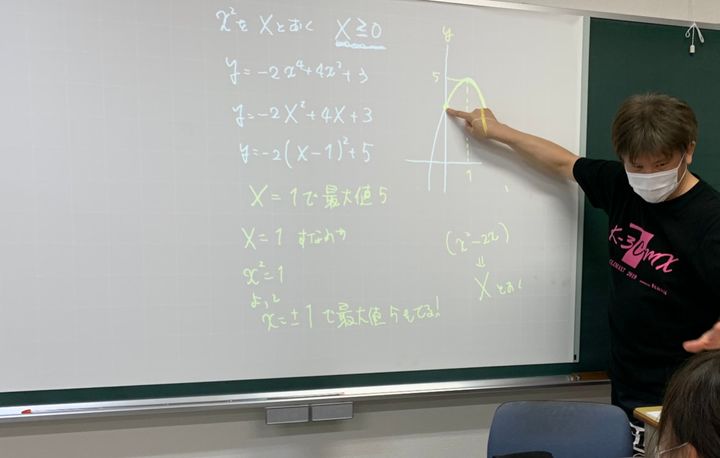 x²をXとおく X≧0
y=-2x⁴+4x²+3
y=-2X²+4X+3
y=-2(X-1)²+5
X=1で最大値5
X=1 すなわち
x²=1
よって
x=±1で最大値5をとる!
y
5
1
(x²-2x)
⇓
Xとおく